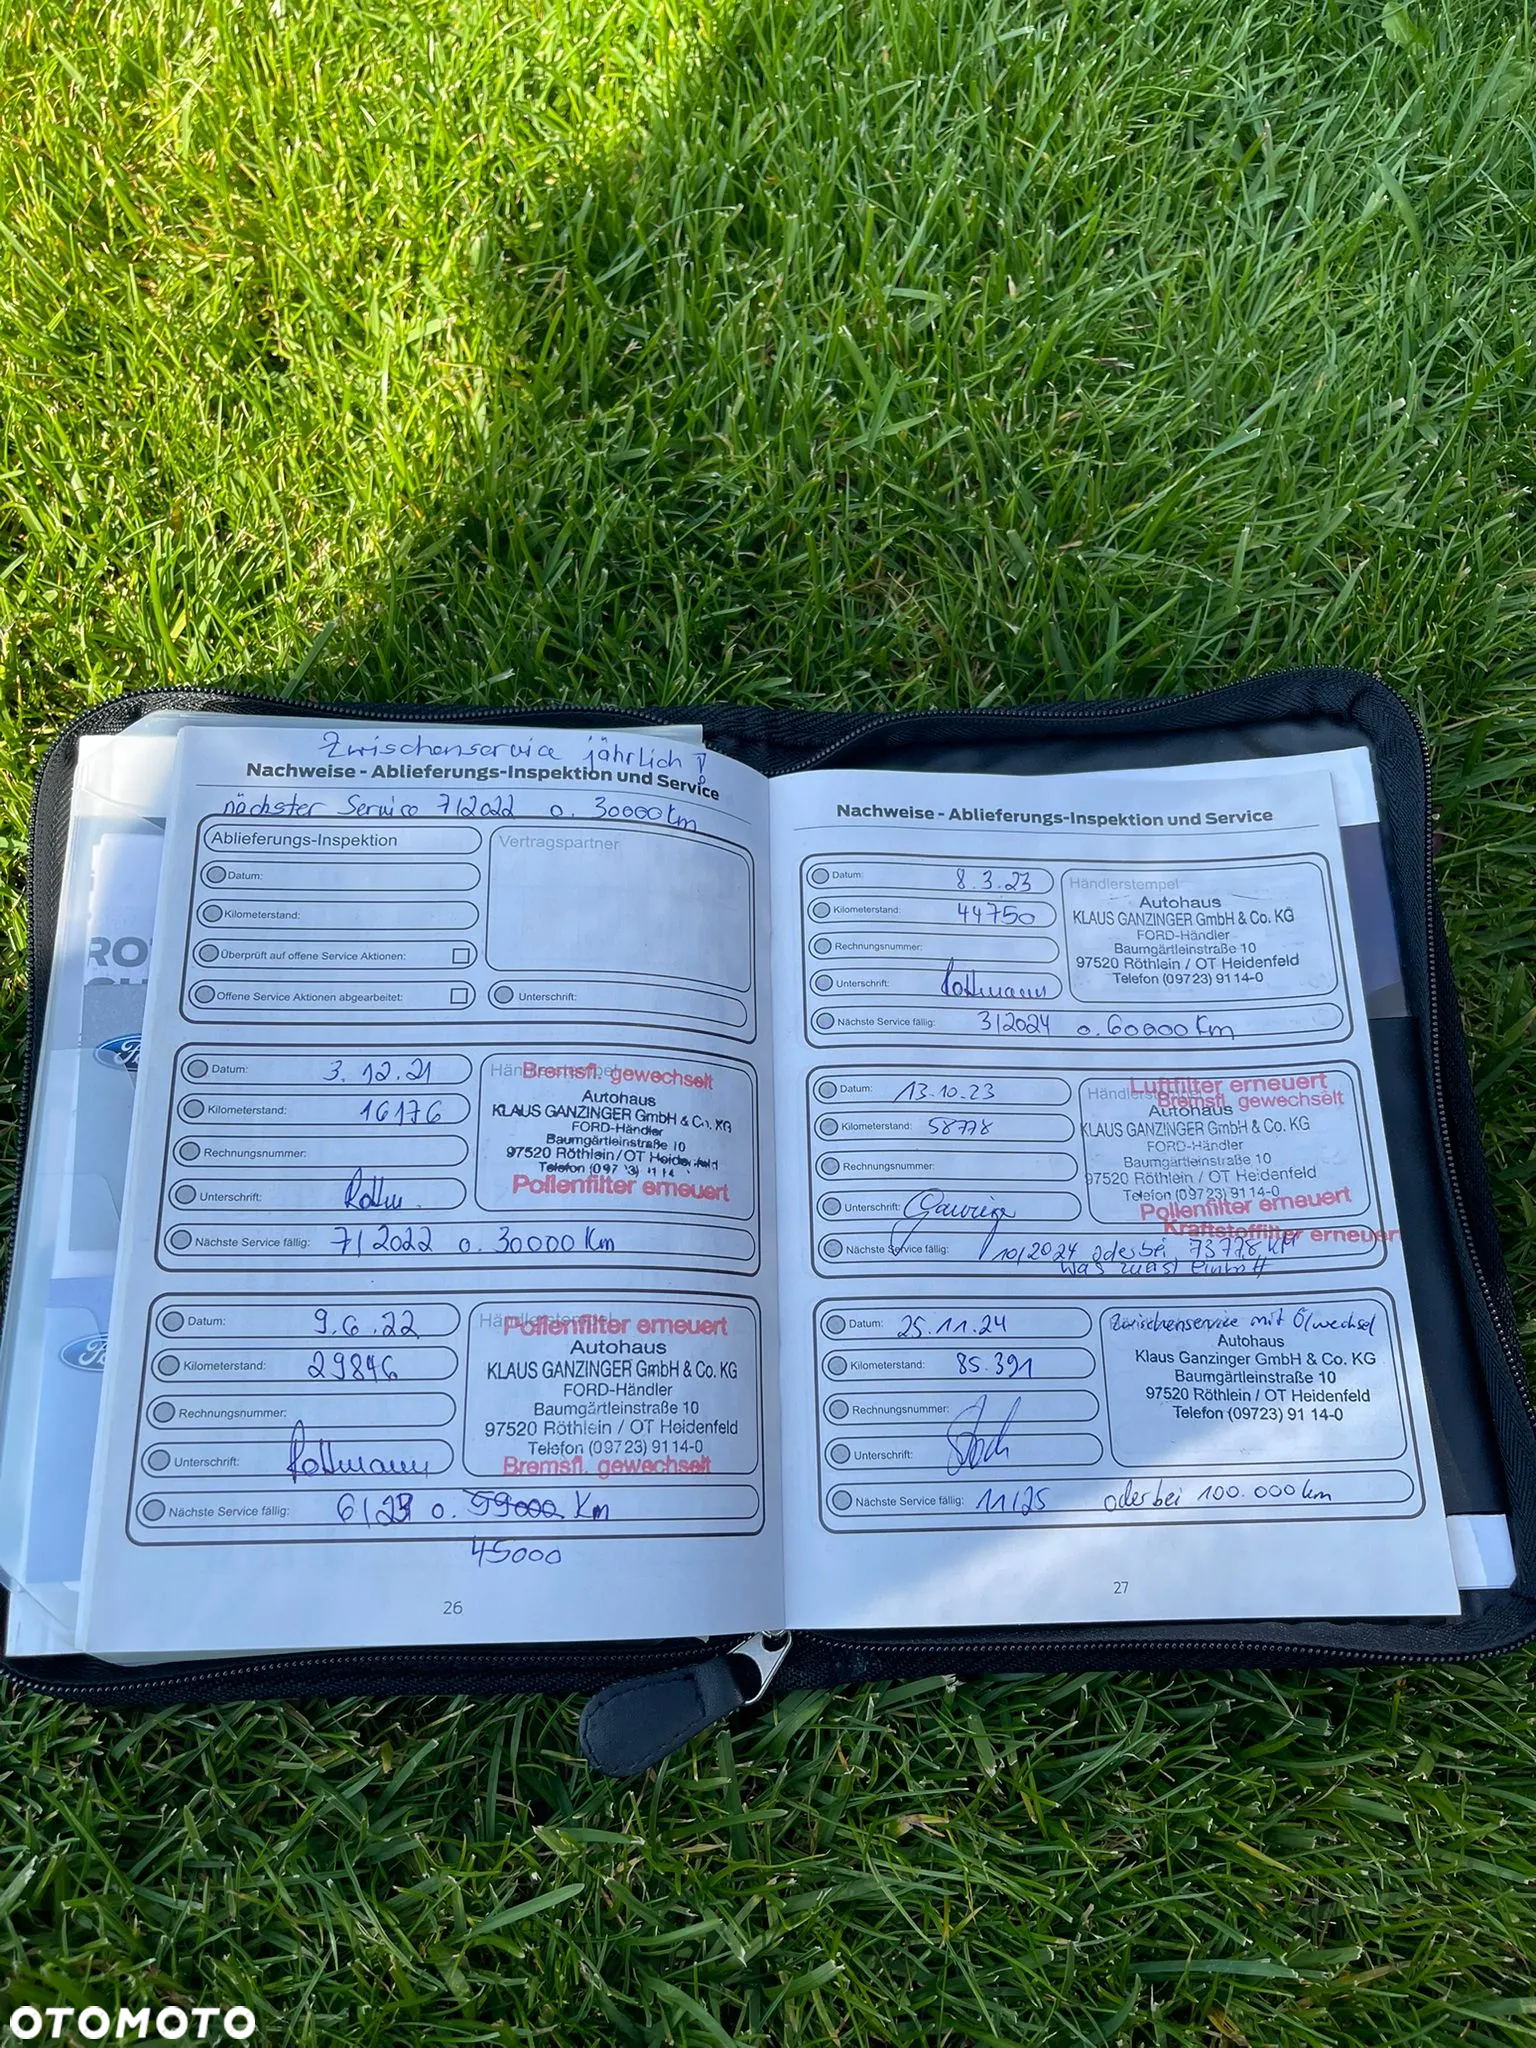 Zwischenservice jährlich !
Nachweise - Ablieferungs-Inspektion und Service
nächster Service 7/2022 o. 30000 Km
Ablieferungs-Inspektion
Vertragspartner
Datum:
Kilometerstand:
Überprüft auf offene Service Aktionen:
Offene Service Aktionen abgearbeitet:
Unterschrift:
Datum: 3.12.21
Kilometerstand: 16176
Rechnungsnummer:
Unterschrift:
Nächste Service fällig: 7/2022 o. 30000 Km
Händlerstempel
Bremsfl. gewechselt
Autohaus
KLAUS GANZINGER GmbH & Co. KG
FORD-Händler
Baumgärtleinstraße 10
97520 Röthlein/OT Heidenfeld
Telefon
Pollenfilter erneuert
Datum: 9.6.22
Kilometerstand: 29846
Rechnungsnummer:
Unterschrift: Rottmann
Nächste Service fällig: 6/23 o. 59000 Km
45000
Händlerstempel
Pollenfilter erneuert
Autohaus
KLAUS GANZINGER GmbH & Co. KG
FORD-Händler
Baumgärtleinstraße 10
97520 Röthlein / OT Heidenfeld
Telefon (09723) 9114-0
Bremsfl. gewechselt
26
Nachweise - Ablieferungs-Inspektion und Service
Datum: 8.3.23
Kilometerstand: 44750
Rechnungsnummer:
Unterschrift: Rottmann
Nächste Service fällig: 3/2024 o. 60000 Km
Händlerstempel
Autohaus
KLAUS GANZINGER GmbH & Co. KG
FORD-Händler
Baumgärtleinstraße 10
97520 Röthlein / OT Heidenfeld
Telefon (09723) 9114-0
Datum: 13.10.23
Kilometerstand: 58778
Rechnungsnummer:
Unterschrift:
Nächste Service fällig: 10/2024 oder bei 73778 KM
was zuerst eintrifft
Händlerstempel
Luftfilter erneuert
Bremsfl. gewechselt
Autohaus
KLAUS GANZINGER GmbH & Co. KG
FORD-Händler
Baumgärtleinstraße 10
97520 Röthlein / OT Heidenfeld
Telefon (09723) 9114-0
Pollenfilter erneuert
Kraftstoffilter erneuert
Datum: 25.11.24
Kilometerstand: 85.391
Rechnungsnummer:
Unterschrift:
Nächste Service fällig: 11/25 oder bei 100.000 km
Zwischenservice mit Ölwechsel
Autohaus
Klaus Ganzinger GmbH & Co. KG
Baumgärtleinstraße 10
97520 Röthlein / OT Heidenfeld
Telefon (09723) 91 14-0
27
Ford
OTOMOTO